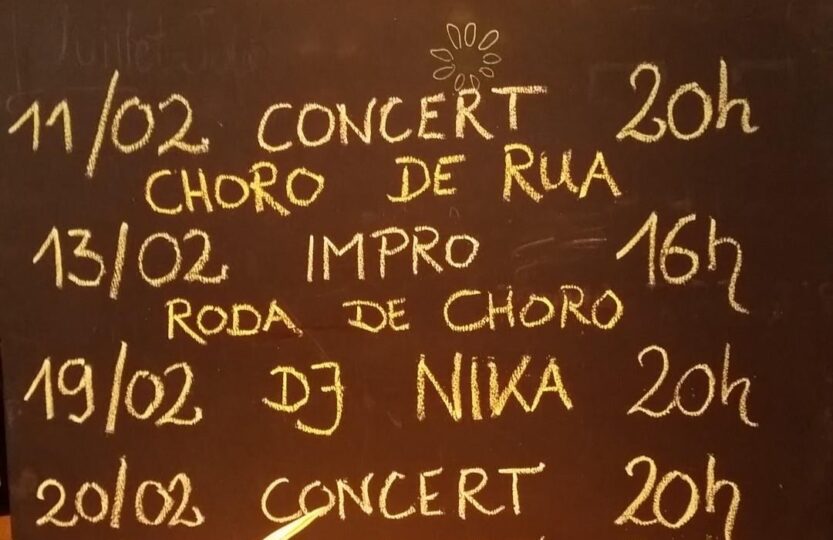 11/02 CONCERT 20h
CHORO DE RUA
13/02 IMPRO 16h
RODA DE CHORO
19/02 DJ NIKA 20h
20/02 CONCERT 20h